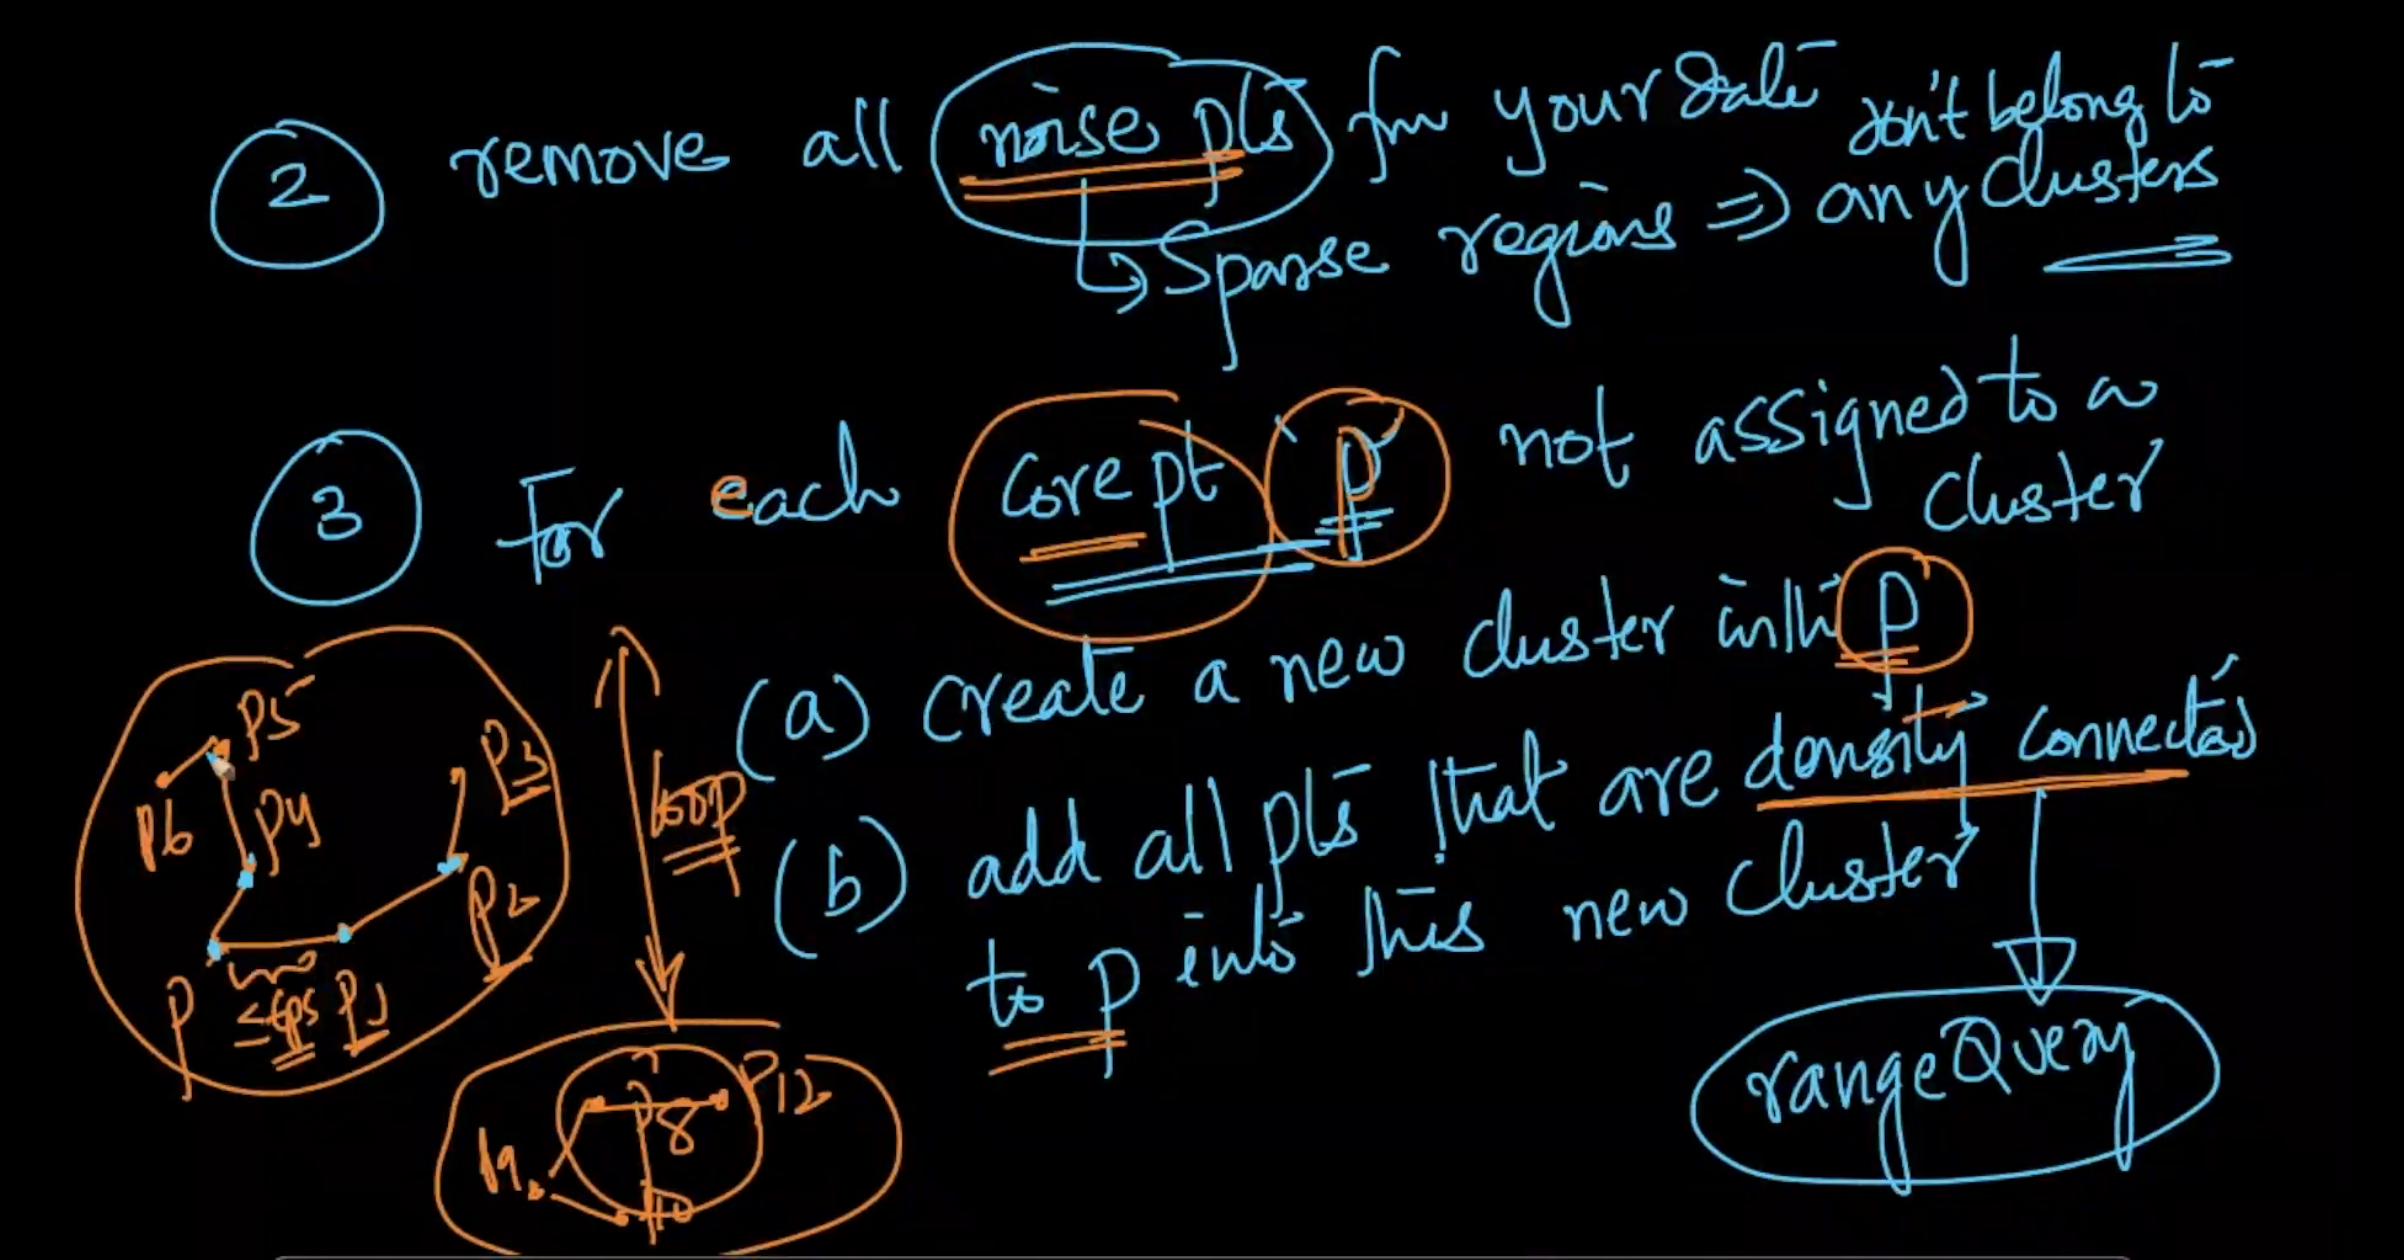 2 remove all noise pts from your data don't belong to
↳ Sparse regions ⇒ any clusters
3 For each core pt P not assigned to a
cluster
(a) create a new cluster with P
(b) add all pts that are density connected
to P into this new cluster
rangeQuery
loop
P5
P6
P4
P3
P2
P
≤ Eps P1
P8
P12
P9
P10